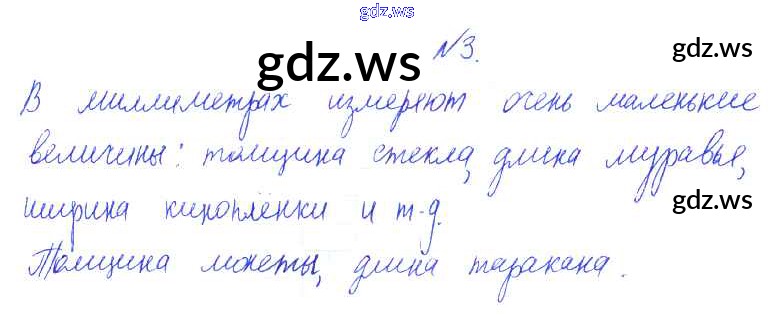 gdz.ws
№3.
gdz.ws
gdz.ws
В миллиметрах измеряют очень маленькие
величины: толщина стекла, длина муравья,
gdz.ws
ширина киноплёнки и т.д.
Толщина монеты, длина таракана.